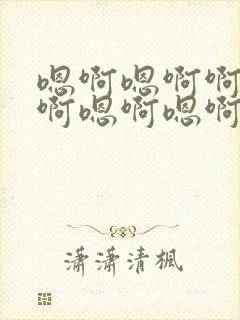 嗯啊嗯啊啊
啊嗯啊嗯啊
潇潇清枫